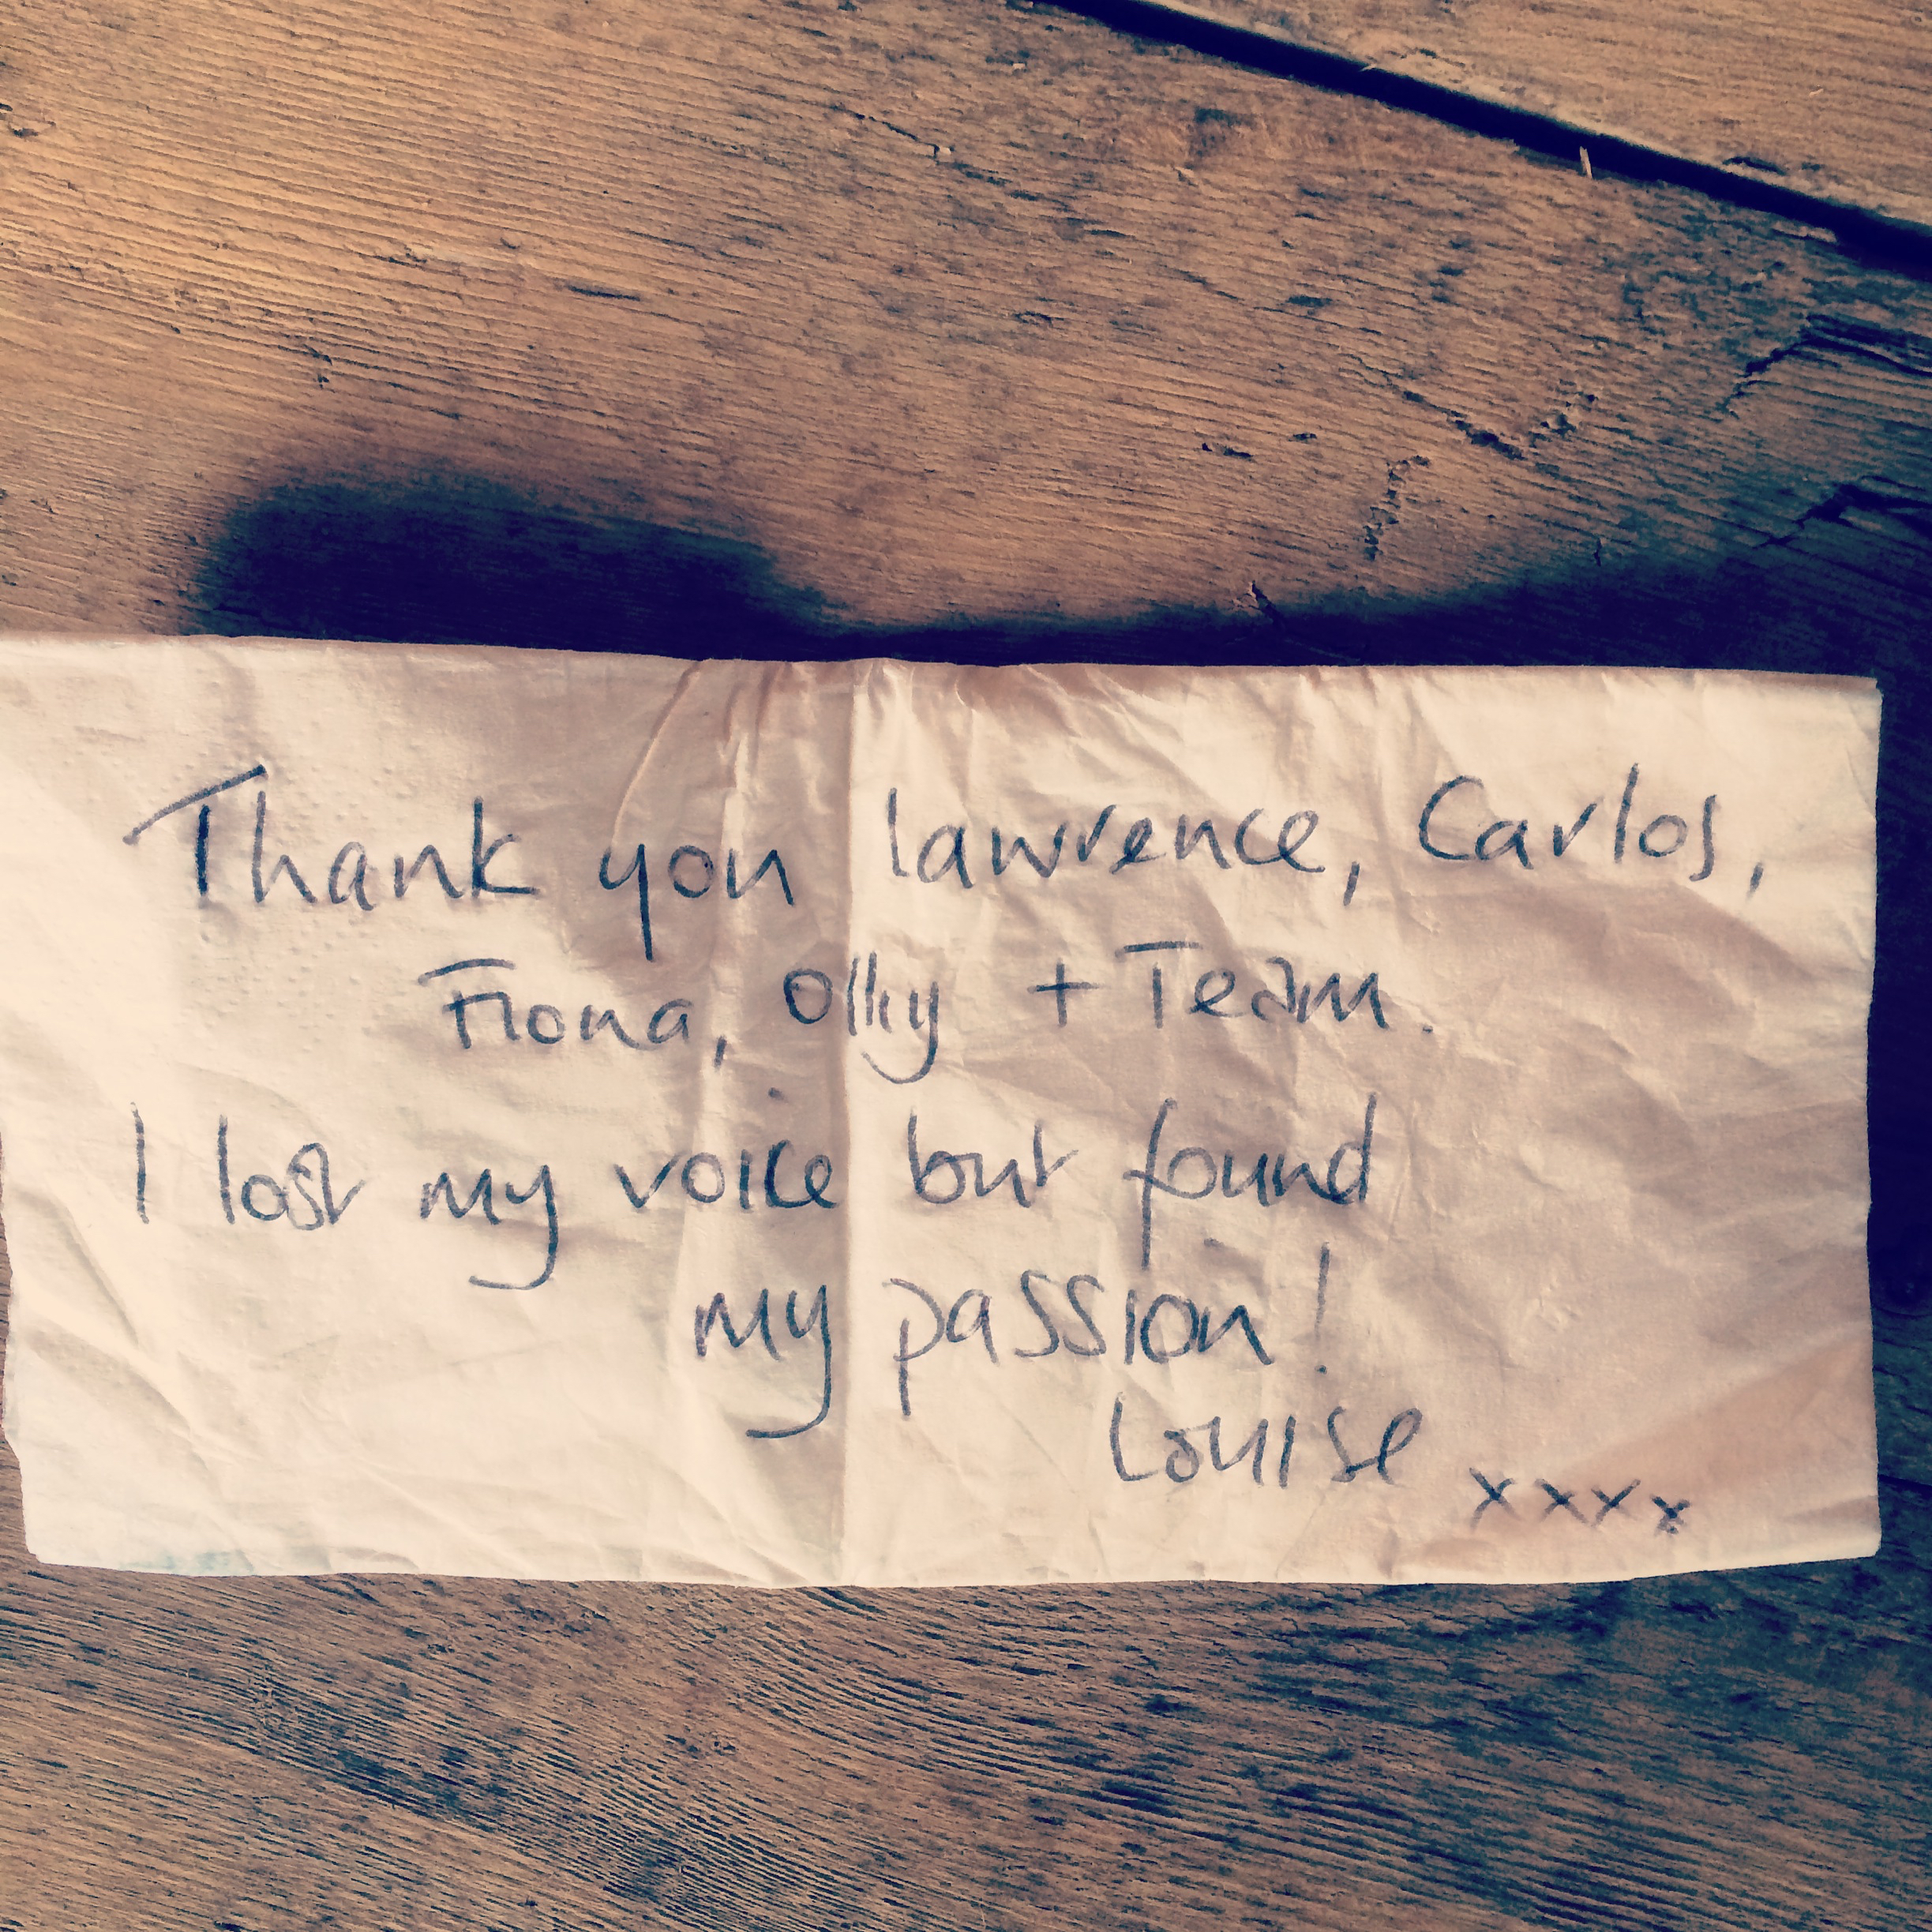 Thank you lawrence, Carlos,
Fiona, Olly + Team.
I lost my voice but found
my passion!
Louise xxxx